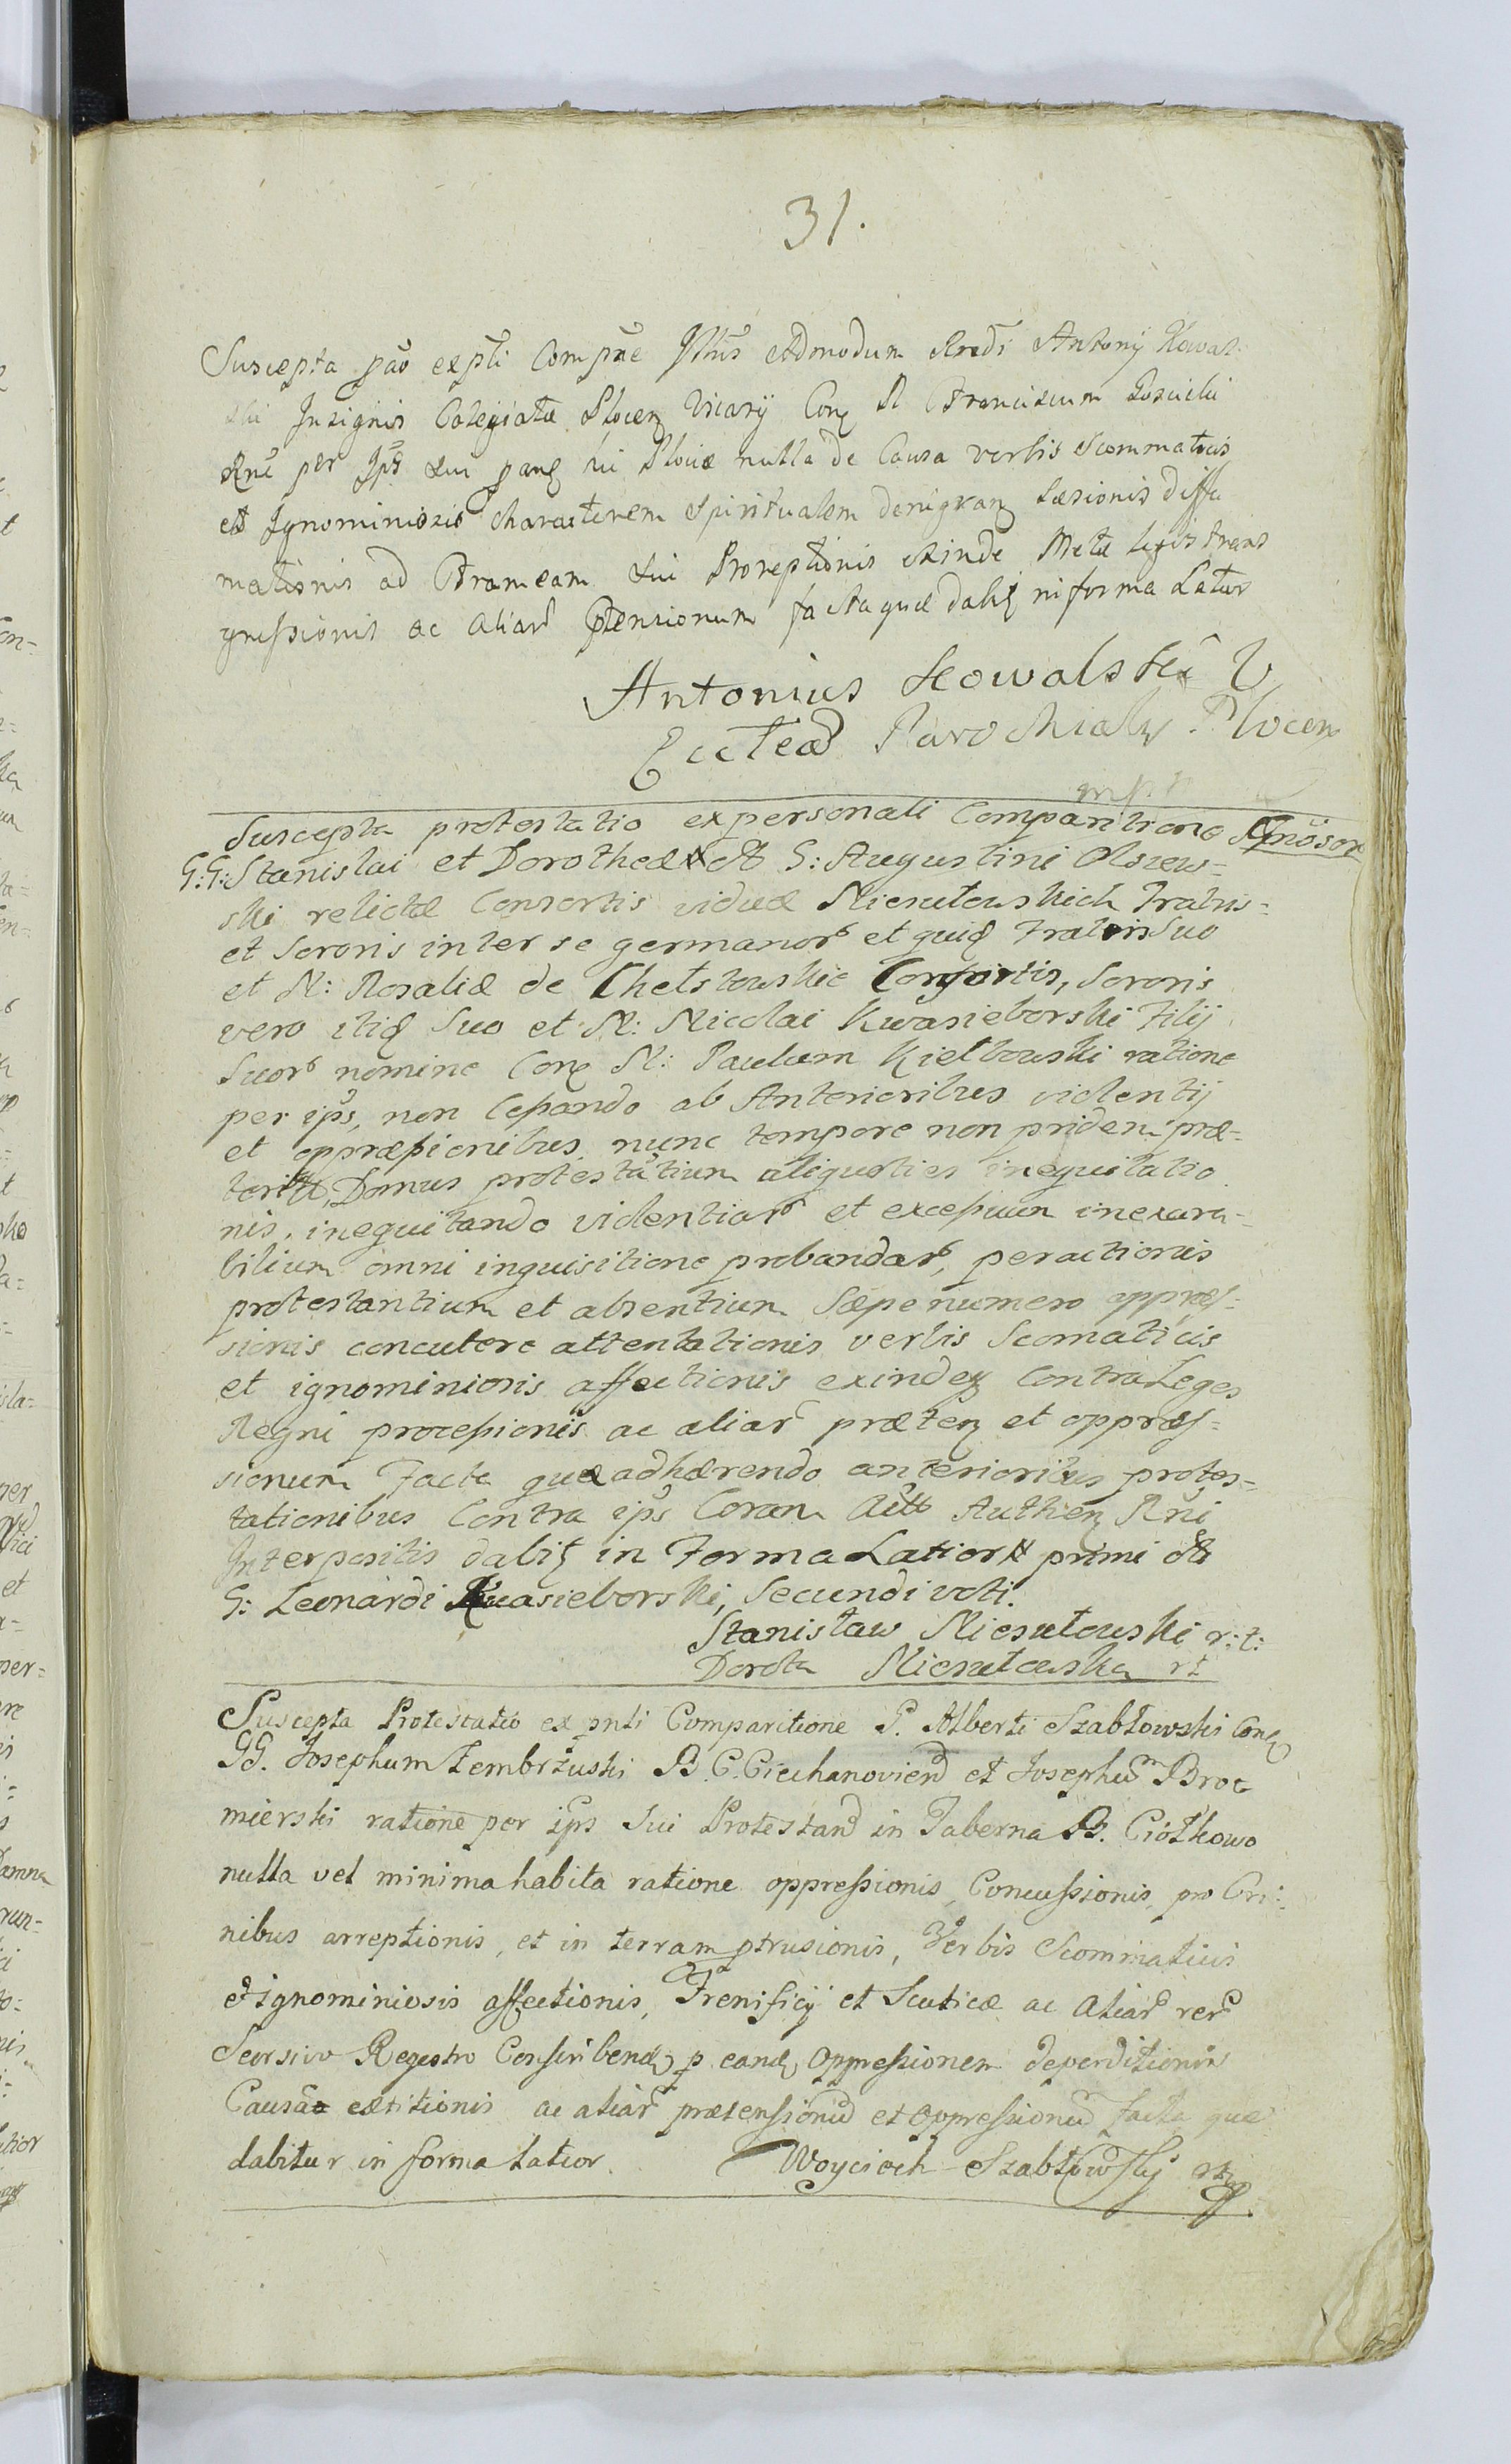 31.
Suscepta pao expti Compne Illris Admodum Rndi Antonij Kowal-
ski Insignis Colegiatæ Plocen Vicarij Con N Franciscum Kosicki
Rne per Ips sui nulla de Causa verbis Scommaticis
et Ignominiosis characterem Spiritualem denigran Læsionis diffa
mationis ad Frameam sui Proreptionis exinde Metæ legis trans
gressionis ac aliar ptensionum facta quæ dabit in forma Latior
Antonius Kowalski V
Eccleæ Parochialis Plocen
mp.
Suscepta protestatio ex personali Comparitione Gnosor
G: G: Stanislai et Dorotheæ G: Augustini Olszew-
ski relictæ Consortis viduæ Niesułowskich Fratris-
et Sororis inter se germanor et quiq Fratris Suo
et N: Rosaliæ de Chełstowskie Consortis, Sororis
vero itiq Suo et N: Nicolai Kwasieborski Filij
Suor nomine Con N: Paulum Kiełbowski ratione
per ips, non Cessando ab Anterioribus violentij
et oppræssionibus nunc tempore non pridem præ-
terito, Domus protestātium aliquoties inequitatio
nis, inequitando violentiar et excessuum inexara-
bilium omni inquisitione probandar, peractionis
protestantium et absentium Sæpenumero oppræs-
sionis concutere attentationis verbis Scomaticis
et ignominiosis affectionis exindeq Contra Leges
Regni processionis ac aliar præten et oppræs-
sionum Facta quæ adhærendo anterioribus protes-
tationibus Contra ips Coram Actis Authen Rni
Interpositis dabit in Forma Latiori primi
G: Leonardi Kwasieborski, Secundi voti.
Stanisław Niesułowski r: t:
Dorota Niesułowska rt
Suscepta Protestatio ex pnti Comparitione G. Alberti Szabłowski Con
GG. Josephum Zembrzuski B. C. Ciechanovien et Josephum Broc
mierski ratione per ips Sui Protestan in Taberna B. Ciółkowo
nulla vel minima habita ratione oppressionis, Concussionis, pro Cri-
nibus arreptionis, et in terram ptrusionis, Verbis Scommaticis
et ignominiosis affectionis, Frenificij et Scuticæ ac aliar rer
Seorsivo Regestro Conscribend p eand Oppressionem deperditionis
Causæ extitionis ac aliar prætensionu et oppressionu facta quæ
dabitur in forma latior. Woyciech Szabłowsky